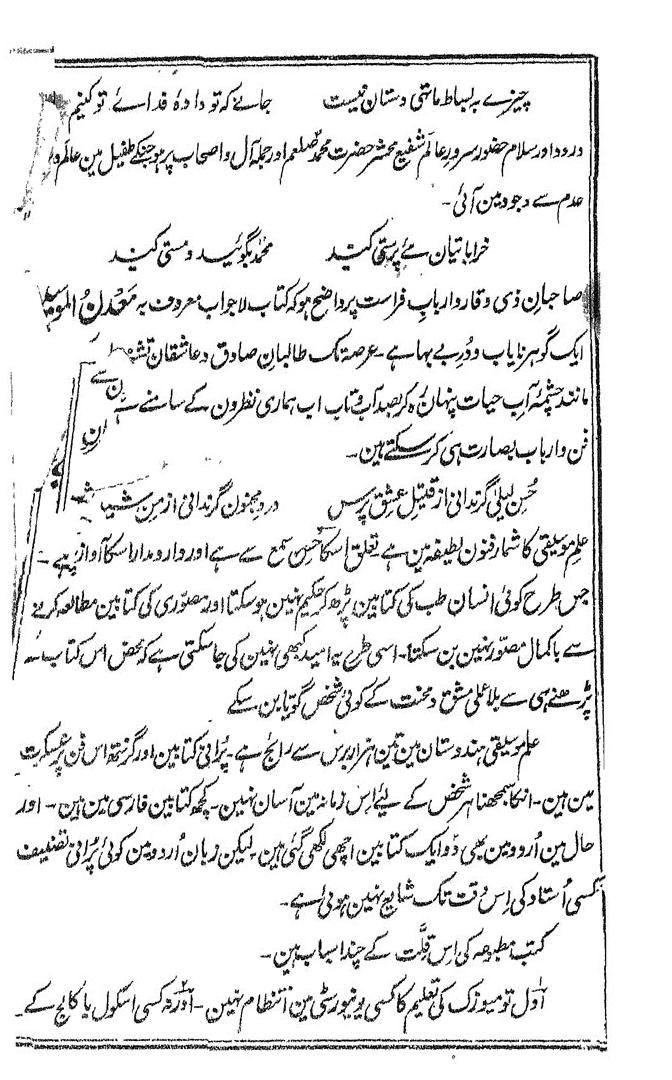 چیزے بہ بساط ما تہی دستان نیست جانے کہ تو دادۂ فدائے تو کنیم
درود اور سلام حضور سرور عالم شفیع محشر حضرت محمد صلعم اور جملہ آل و اصحاب پر ہو جنکے طفیل مین عالم و
عدم سے وجود مین آئی۔
خراباتیان مے پرستی کنید محمدؐ بگوئید و مستی کنید
صاحبانِ ذی وقار و اربابِ فراست پر واضح ہو کہ کتاب لاجواب معروف بہ معدن الموسیقی
ایک گوہر نایاب و دُرِ بے بہا ہے۔ عرصہ تک طالبانِ صادق و عاشقان
مانند چشمۂ آبِ حیات پنہان رہ کر بصد آب و تاب اب ہماری نظرون کے سامنے ہے
فن و ارباب بصارت ہی کر سکتے ہین۔
حُسن لیلیٰ گرندانی از قتیلِ عشق پرس دردِ مجنون گرندانی از من
علم موسیقی کا شمار فنون لطیفہ مین ہے تعلق اسکا حُسنِ سمع سے ہے اور دارومدار اسکا آواز پر ہے۔
جس طرح کوئی انسان طب کی کتابین پڑھ کر حکیم نہین ہو سکتا اور مصوّری کی کتابین مطالعہ کرنے
سے باکمال مصوّر نہین بن سکتا۔ اسی طرح یہ امید کبھی نہین کی جاسکتی ہے کہ محض اس کتاب کے
پڑھنے ہی سے بلا عملی مشق و محنت کے کوئی شخص گویّا بن سکے
علم موسیقی ہندوستان مین تین ہزار برس سے رائج ہے۔ پُرانی کتابین اور گرنتھ اس فن پر سنسکرت
مین ہین۔ انکا سمجھنا ہر شخص کے لیے اِس زمانہ مین آسان نہین۔ کچھ کتابین فارسی مین ہین۔ اور
حال مین اُردو مین بھی دو ایک کتابین اچھی لکھی گئی ہین۔ لیکن زبان اُردو مین کوئی پُرانی تصنیف
کسی اُستاد کی اِس وقت تک شایع نہین ہوئی ہے۔
کتب مطبوعہ کی اس قلّت کے چند اسباب ہین۔
اوّل تو میوزک کی تعلیم کا کسی یونیورسٹی مین انتظام نہین۔ اور نہ کسی اسکول یا کالج کے۔